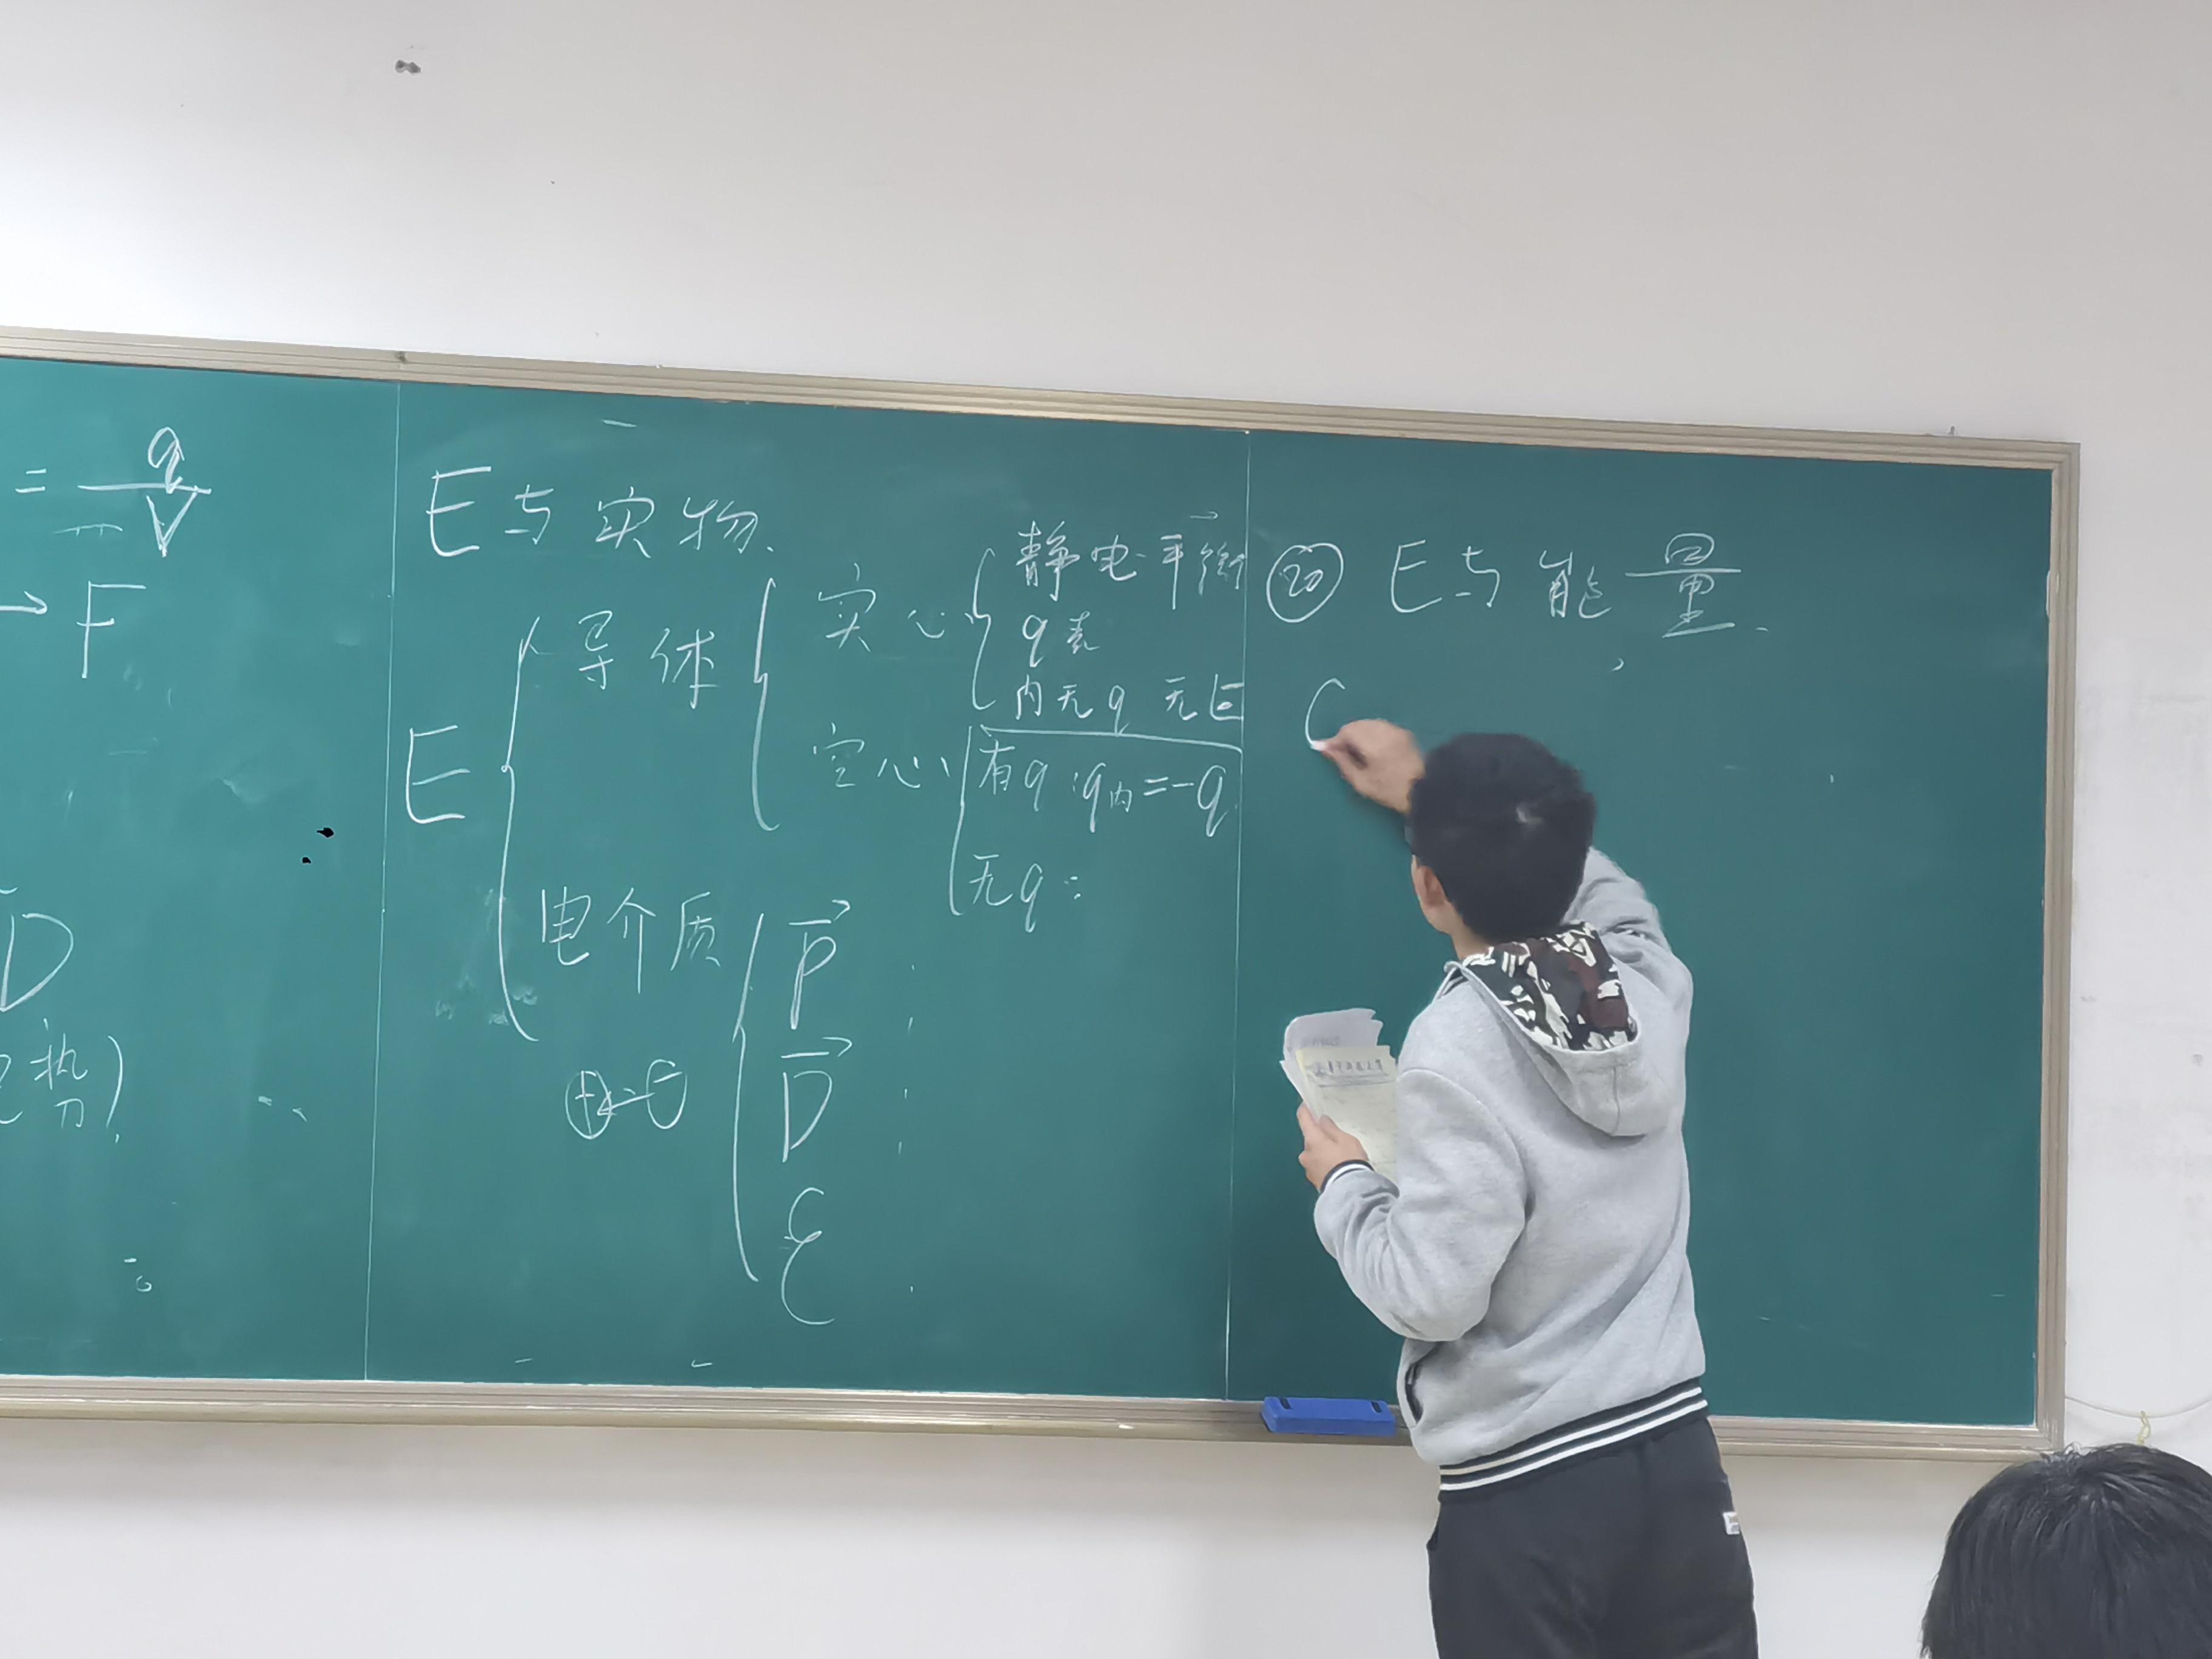 = q/V
→ F
D
执
E与实物.
E
导体
实心
静电平衡
q表
内无q 无E
空心
有q:q内=-q
无q:
电介质
P→
⊕←⊖
D→
ε
⑳ E与能量.
C